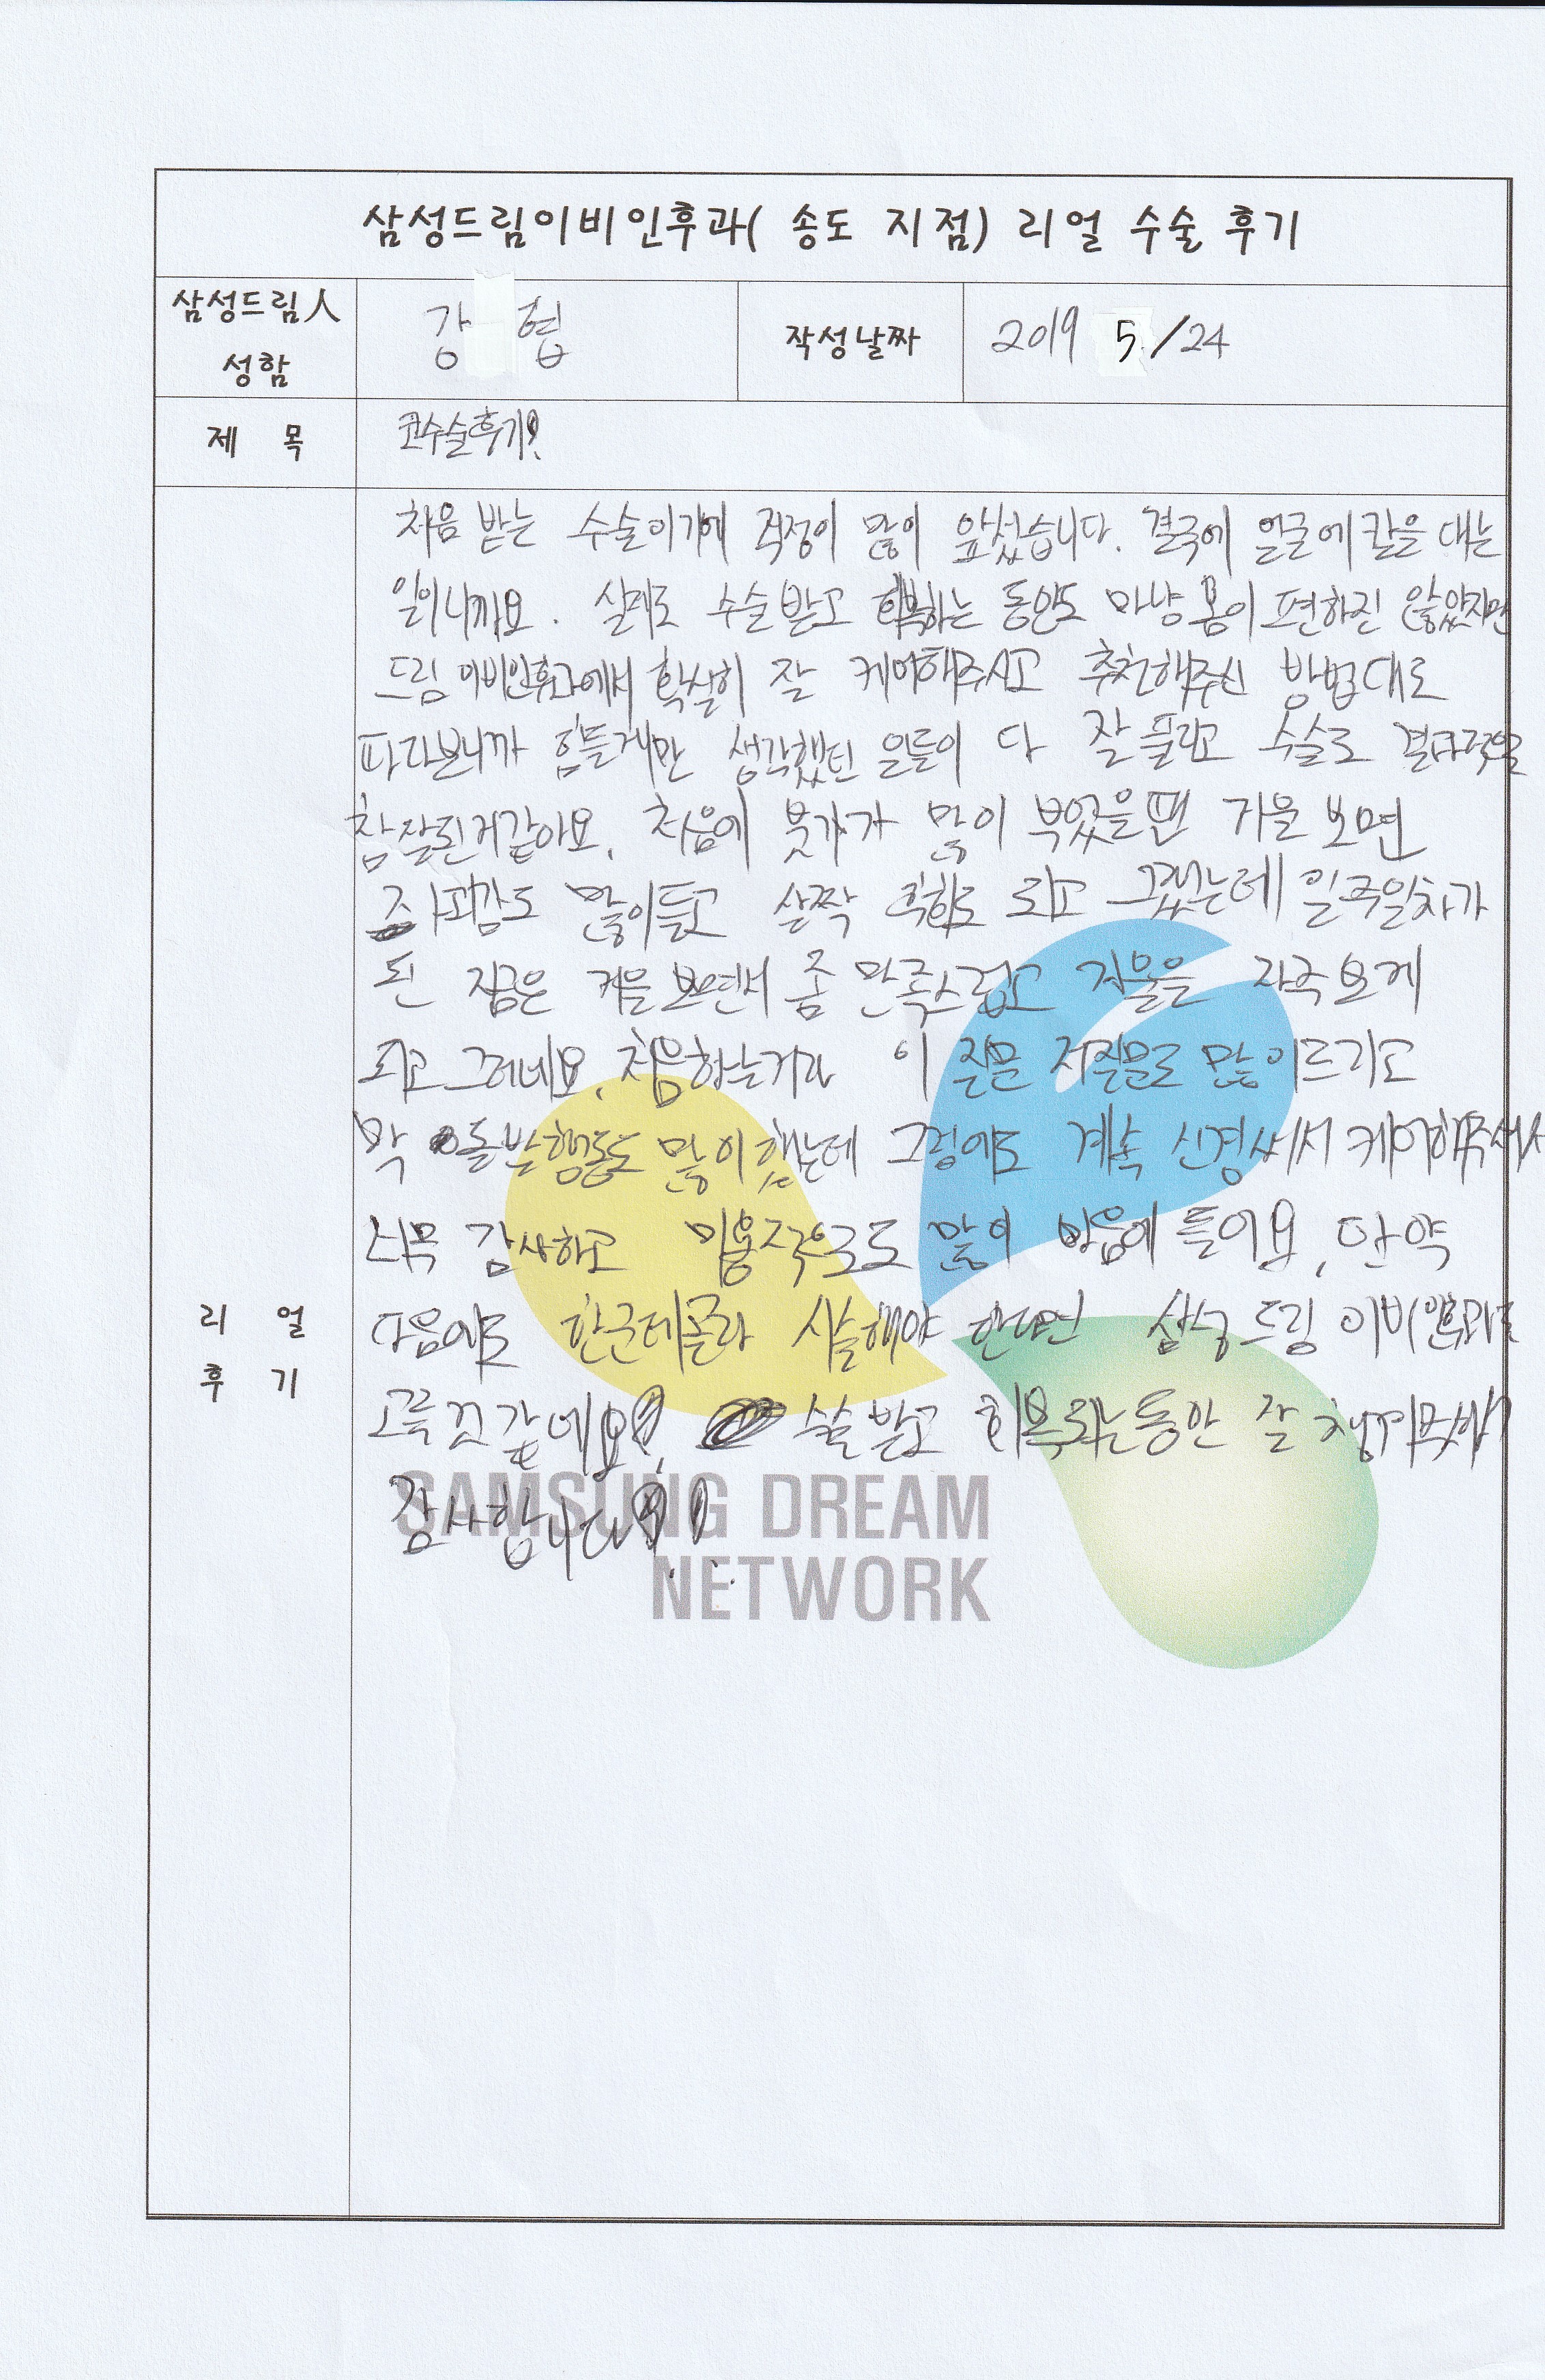 삼성드림이비인후과( 송도 지점) 리얼 수술 후기
삼성드림人 성함
강 협
작성날짜
2019 5/24
제 목
코수술후기!
리 얼 후 기
처음 받는 수술이기에 걱정이 많이 앞섰습니다. 결국에 얼굴에 칼을 대는
일이니까요. 실제로 수술받고 회복하는 동안도 마냥 몸이 편하진 않았지만
드림이비인후과에서 확실히 잘 케어해주시고 추천해주신 방법대로
따라보니까 힘들게만 생각했던 일들이 다 잘 풀리고 수술도 결과적으로
참 잘된거같아요. 처음에 붓기가 많이 부었을땐 거울 보면
많이들고 살짝 후회도 되고 그랬는데 일주일차가
된 지금은 거울 보면서 좀 만족스럽고 거울을 자주 보게
되고 그러네요. 처음하는거라 이 질문 저질문도 많이드리고
막 돌발행동도 많이 했는데 그럼에도 계속 신경써서 케어해주셔서
너무 감사하고 미용적으로도 많이 마음에 들어요. 만약
다음에도 한군데골라 시술해야 한다면 삼성드림 이비인후과를
고를것같네요! 수술 받고 회복되는동안 잘 챙겨주셔서
감사합니다!!
SAMSUNG DREAM
NETWORK